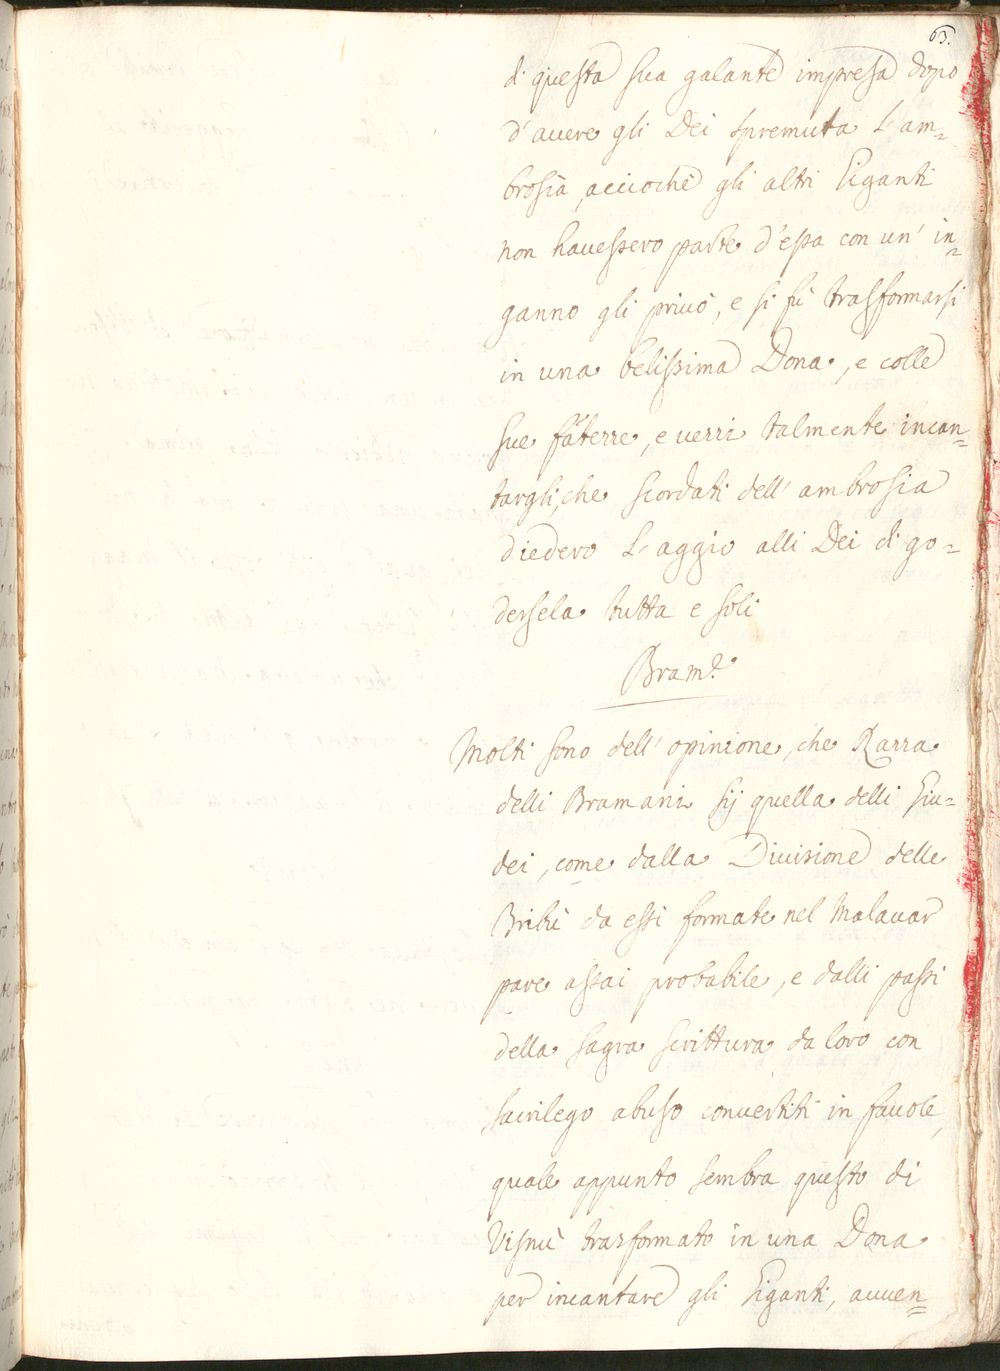 63.
di questa sua galante impresa dopo
d'avere gli Dei spremuta l'am=
brosia, acciochè gli altri Giganti
non havessero parte d'essa con un' in=
ganno gli privò, e si fù trasformarsi
in una belissima Dona, e colle
sue fatezze, e vezzi talmente incan=
targli, che scordati dell' ambrosia
diedero l'aggio alli Dei di go=
dersela tutta e soli
Bram.e
Molti sono dell' opinione, che Razza
delli Bramani sij quella delli Giu=
dei, come dalla Divisione delle
Tribù da essi formate nel Malavar
pare assai probabile, e dalli passi
della sagra scrittura da loro con
sacrilego abuso convertiti in favole,
quale appunto sembra questo di
Visnù trasformato in una Dona
per incantare gli Giganti, avven=